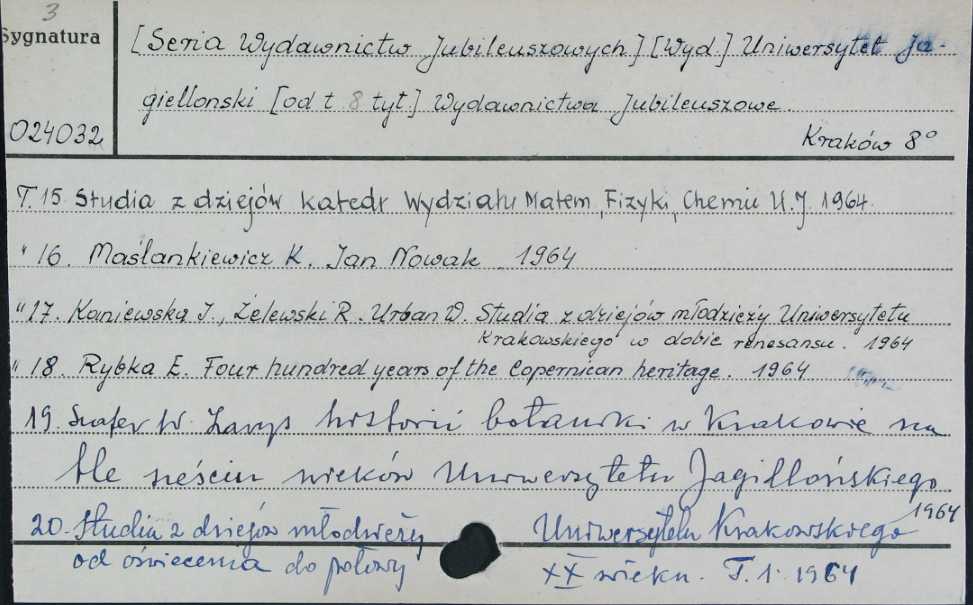 3
Sygnatura
[Seria Wydawnictw Jubileuszowych] [Wyd.] Uniwersytet Ja-
giellonski [od t 8 tyt.] Wydawnictwa Jubileuszowe
024032
Kraków 8°
T. 15 Studia z dziejów katedr Wydziału Matem, Fizyki, Chemii U.J. 1964
" 16. Maślankiewicz K. Jan Nowak 1964
" 17. Kaniewska J., Żelewski R. Urban W. Studia z dziejów młodzieży Uniwersytetu
Krakowskiego w dobie renesansu. 1964
" 18. Rybka E. Four hundred years of the Copernican heritage. 1964
19. Szafer W. Zarys historii botaniki w Krakowie na
tle sześciu wieków Uniwersytetu Jagiellońskiego
1964
20. Studia z dziejów młodzieży Uniwersytetu Krakowskiego
od oświecenia do połowy XX wieku. T. 1. 1964